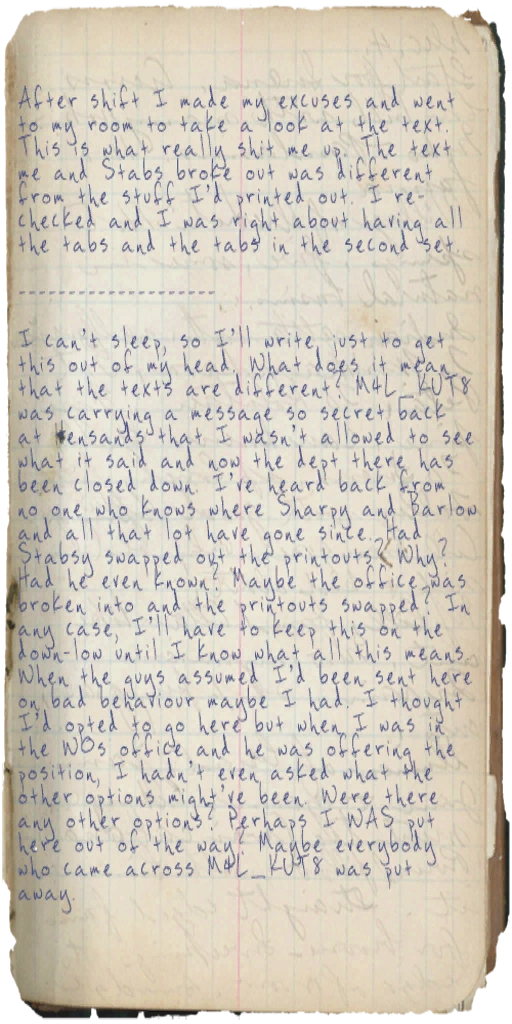 After shift I made my excuses and went
to my room to take a look at the text.
This is what really shit me up. The text
me and Stabs broke out was different
from the stuff I'd printed out. I re-
checked and I was right about having all
the tabs and the tabs in the second set.
--------------------
I can't sleep, so I'll write just to get
this out of my head. What does it mean
that the texts are different? M4L_KUT8
was carrying a message so secret back
at Kensands that I wasn't allowed to see
what it said and now the dept there has
been closed down. I've heard back from
no one who knows where Sharpy and Barlow
and all that lot have gone since. Had
Stabsy swapped out the printouts? Why?
Had he even known? Maybe the office was
broken into and the printouts swapped? In
any case, I'll have to keep this on the
down-low until I know what all this means.
When the guys assumed I'd been sent here
on bad behaviour maybe I had. I thought
I'd opted to go here but when I was in
the WOs office and he was offering the
position, I hadn't even asked what the
other options might've been. Were there
any other options? Perhaps I WAS put
here out of the way? Maybe everybody
who came across M4L_KUT8 was put
away.